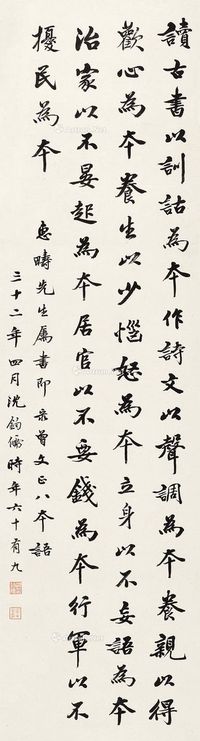 讀古書以訓詁為本作詩文以聲調為本養親以得
歡心為本養生以少惱怒為本立身以不妄語為本
治家以不晏起為本居官以不要錢為本行軍以不
擾民為本
惠疇先生屬書即录曾文正八本語
三十二年四月沈鈞儒時年六十有九